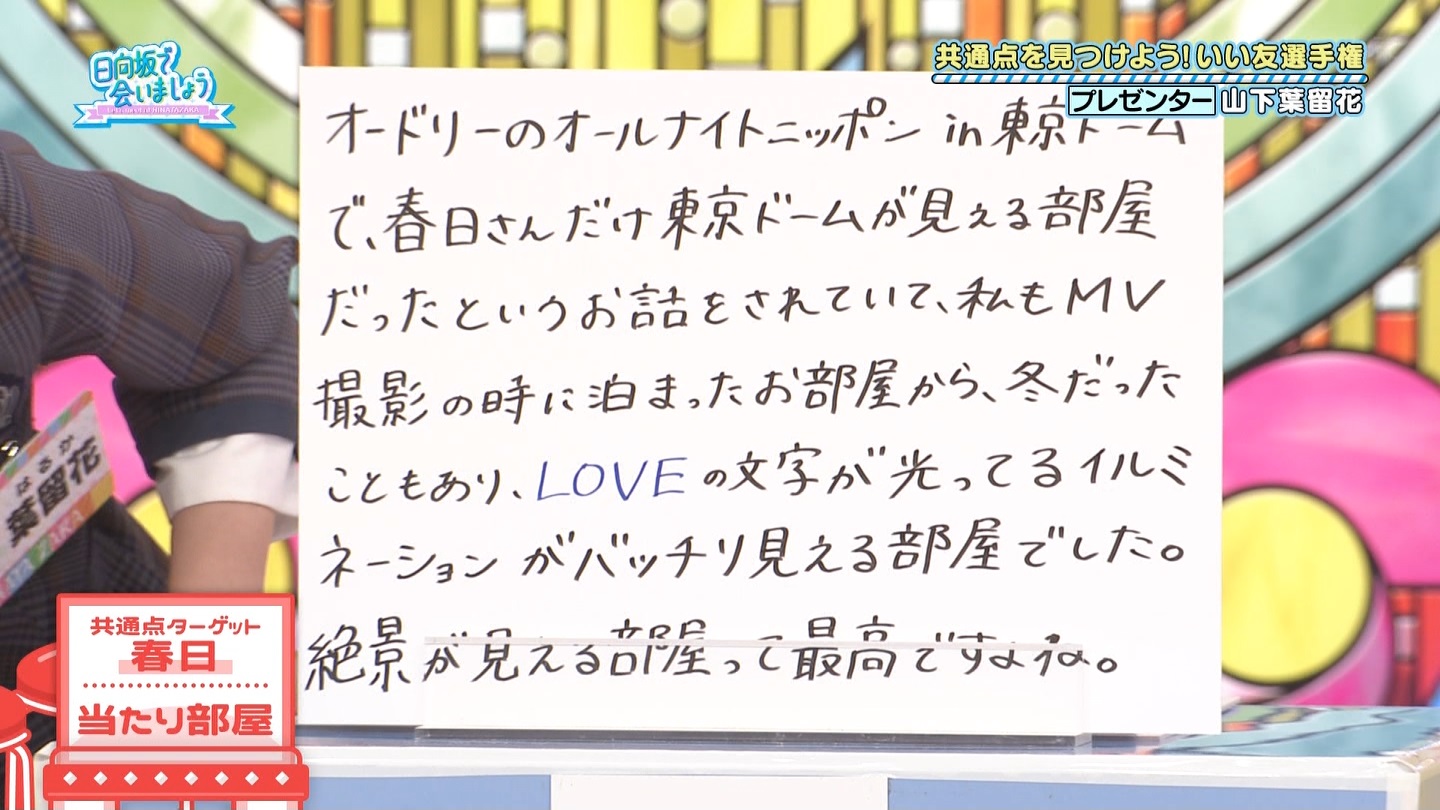 日向坂で
会いましょう
共通点を見つけよう!いい友選手権
プレゼンター 山下葉留花
オードリーのオールナイトニッポン in 東京ドーム
で、春日さんだけ東京ドームが見える部屋
だったというお話をされていて、私もMV
撮影の時に泊まったお部屋から、冬だった
こともあり、LOVEの文字が光ってるイルミ
ネーションがバッチリ見える部屋でした。
絶景が見える部屋って最高ですよね。
はるか
葉留花
共通点ターゲット
春日
当たり部屋